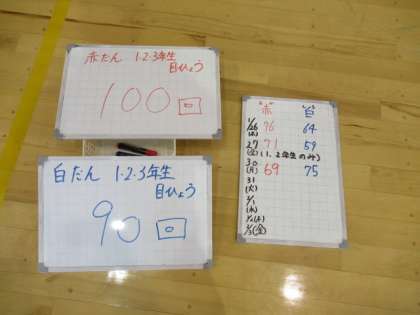 赤だん 1·2·3年生
目ひょう
100回
白だん 1·2·3年生
目ひょう
90回
"赤" "白"
1/26(木) 96 64
27(金) 91 59
(1、2年生のみ)
30(月) 69 75
31(火)
2/1(水)
2/2(木)
2/3(金)